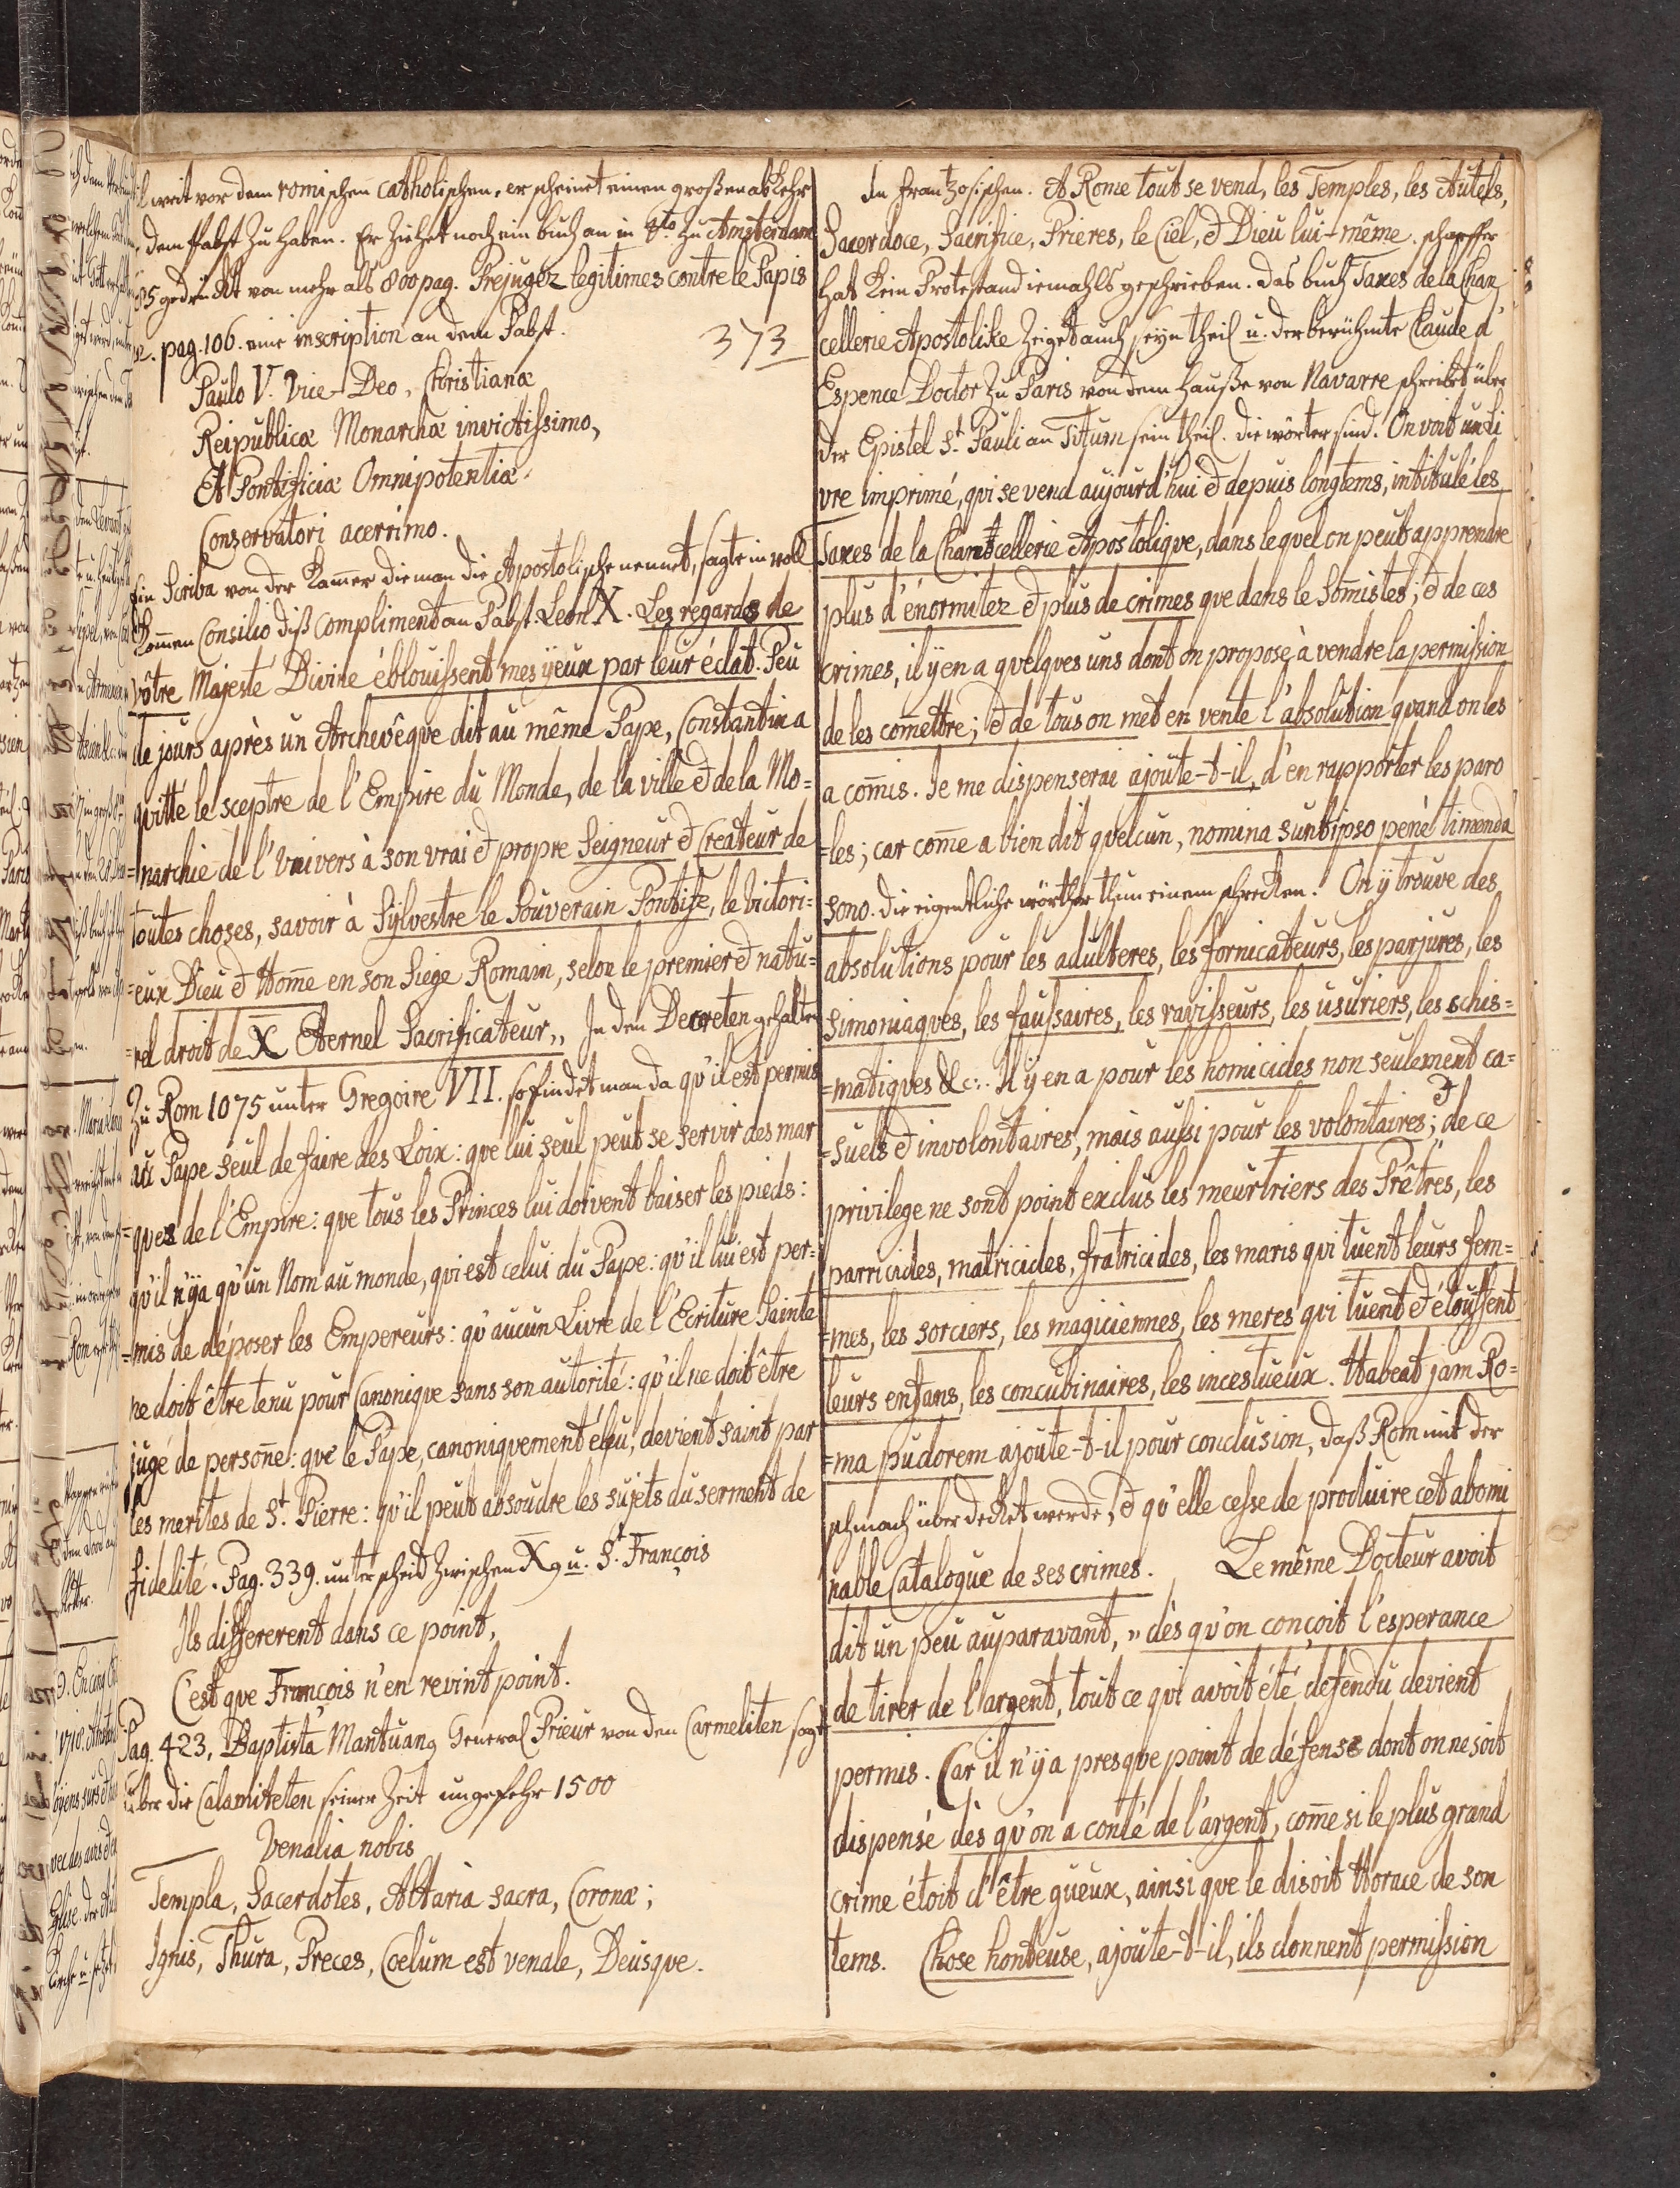 weit vor dem romischen catholischen, er scheinet einen großen abkehr
dem Pabst zu haben. Er ziehet noch ein buch an in 4to zu Amsterdam
85 gedruckt von mehr als 800 pag. Prejugez legitimes contre le Papis
me. pag. 106. eine inscription an dem Pabst.
373
Paulo V. Vice-Deo, Christianæ
Reipublicæ Monarchæ invictissimo,
Et Pontificiæ Omnipotentiæ
Conservatori acerrimo.
Ein Scriba von der Kamer die man die Apostolische nennet, sagte in voll
Komen Consilio diß Compliment an Pabst Leon X. Les regards de
vôtre Majesté Divine éblouissent mes ÿeux par leur éclat. Peu
de jours après un Archevêque dit au même Pape, Constantin a
quitté le sceptre de l'Empire du Monde, de la ville & de la Mo=
=narchie de l'Univers à son vrai & propre Seigneur & Createur de
toutes choses, savoir à Sÿlvestre le Souverain Pontife, le victori=
=eux Dieu & Home en son Siege Romain, selon le premier & natu=
=rel droit de X Eternel Sacrificateur,, In den Decreten gehalten
Zu Rom 1075 unter Gregoire VII. so findet man da qu'il est permis
au Pape seul de faire des Loix: que lui seul peut se servir des mar
=ques de l'Empire: que tous les Princes lui doivent baiser les pieds:
qu'il n'ÿa qu'un Nom au monde, qui est celui du Pape: qu'il lui est per=
=mis de déposer les Empereurs: qu'aucun Livre de l'Ecriture Sainte
ne doit être tenu pour Canonique sans son autorité: qu'il ne doit être
jugé de persone: que le Pape, canoniquement élu, devient saint par
les merites de St. Pierre: qu'il peut absoudre les sujets du serment de
fidelité. Pag. 339. unterscheid zwischen X9 u. St. François
Ils differerent dans ce point,
C'est que François n'en revint point.
Pag. 423, Baptista Mantuan9 General Prieur von den Carmeliten sagt
über die Calamiteten seiner Zeit ungefehr 1500
Venalia nobis
Templa, Sacerdotes, Altaria sacra, Coronæ;
Ignis, Thura, Preces, Coelum est venale, Deusque.
In frantzosischen. A Rome tout se vend, les Temples, les Autels,
Sacerdoce, Sacrifice, Prieres, le Ciel, & Dieu lui-même. schaffer
hat kein Protestand iemahls geschrieben. Das buch Taxes de la Chan
cellerie Apostolike zeiget auch seÿn theil u. der berühmte Claude d'
Espence Doctor zu Paris von dem Hauße von Navarre schreibt über
der Epistel St. Pauli an Titum sein theil. die wörter sind. On voit un Li
vre imprimé, qui se vend aujourd'hui & depuis longtems, intitulé les
Taxes de la Chantcellerie Apostolique, dans lequel on peut apprendre
plus d'énormitez & plus de crimes que dans le Somistes; & de ces
crimes, il ÿ en a quelques uns dont on propose à vendre la permission
de les comettre; & de tous on met en vente l'absolution quand on les
a comis. Je me dispenserai ajoute-t-il, d'en rapporter les paro
=les; car come a bien dit quelcun, nomina sunt ipso penè timenda
sono. die eigentliche wörther thun einem schrecken. On ÿ trouve des
absolutions pour les adulteres, les fornicateurs, les parjures, les
simoniaques, les faussaires, les ravisseurs, les usuriers, les schis=
=matiques &c.. Il ÿ en a pour les homicides non seulement ca=
=suels & involontaires, mais aussi pour les volontaires; & de ce
privilege ne sont point exclus les meurtriers des Prêtres, les
parricides, matricides, fratricides, les maris qui tuent leurs fem=
=mes, les sorciers, les magiciennes, les meres qui tuent & étouffent
leurs enfans, les concubinaires, les incestueux. Habeat jam Ro=
=ma pudorem ajoute-t-il pour conclusion, daß Rom mit der
schmach über decket werde, & qu'elle cesse de produire cet abomi
nable Catalogue de ses crimes. Le même Docteur avoit
dit un peu auparavant, " dès qu'on conçoit l'esperance
de tirer de l'argent, tout ce qui avoit été defendu devient
permis. Car il n'ÿ a presque point de défense dont on ne soit
dispensé dès qu'on a conté de l'argent, come si le plus grand
crime étoit d'être gueux, ainsi que le disoit Horace de son
tems. Chose honteuse, ajoute-t-il, ils donnent permission